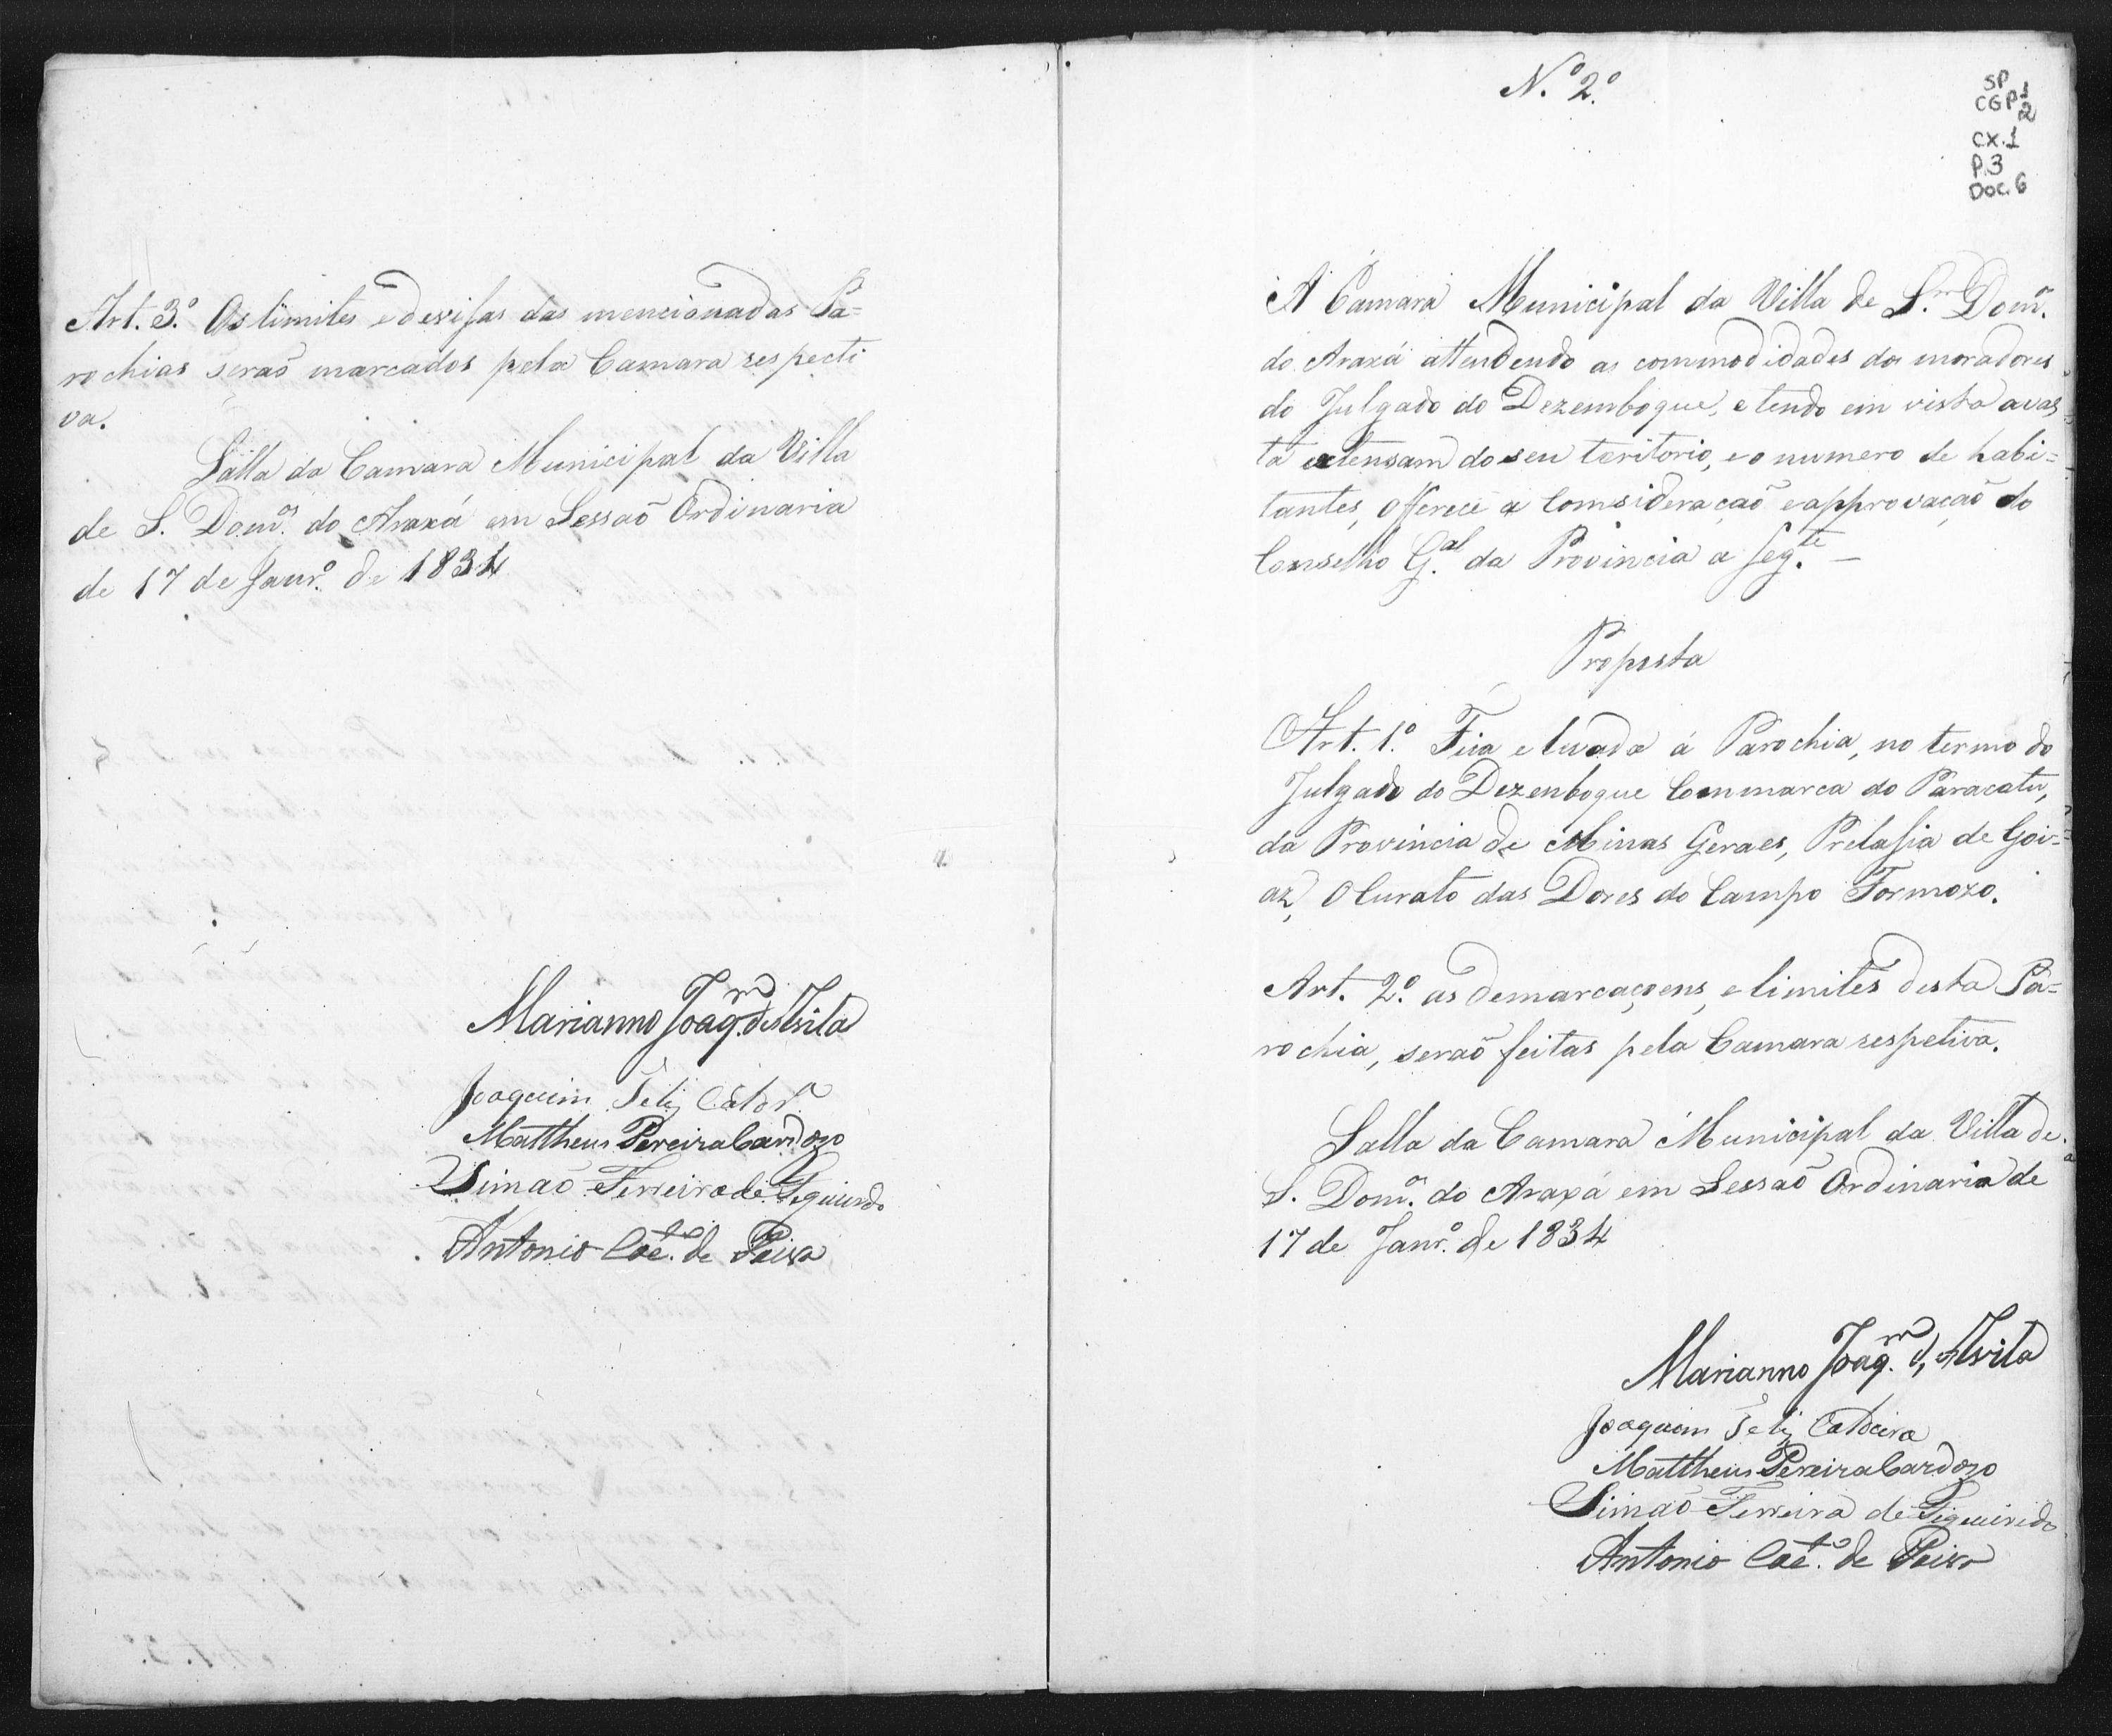 Art. 3.º Os limites e devisas das mencionadas Pa=
rochias seraõ marcados pela Camara respecti
va.
Salla da Camara Municipal da Villa
de S. Dom.os do Araxá em Sessaõ Ordinaria
de 17 de Janr.º de 1834
Marianno Joaq.m d'Avila
Joaquim Feliz Cald.ra
Mattheus Pereira Cardozo
Simaõ Ferreira de Figueiredo
Antonio Cae.to de Paiva
N.º 2.º
SP
CGP 1
2
CX.1
P.3
DOC.6
A Camara Municipal da Villa de S. Dom.os
do Araxá attendendo as commodidades dos moradores
do Julgado do Dezemboque, e tendo em vista a vas
ta extensam do seu teritorio, e o numero de habi=
tantes, Offerece a Comsideraçaõ e approvaçaõ do
Conselho G.al da Provincia a seg.te —
Proposta
Art. 1.º Fica elevada á Parochia, no termo do
Julgado do Dezenboque Commarca do Paracatu,
da Provincia de Minas Geraes, Prelasia de Goi=
az, O Curato das Dores do Campo Formozo.
Art. 2.º as demarcaçoens, e limites desta Pa=
rochia, seraõ feitas pela Camara respetiva.
Salla da Camara Municipal da Villa de
S. Dom.os do Araxá em Sessaõ Ordinaria de
17 de Janr.º de 1834
Marianno Joaq.m d'Avila
Joaquim Feliz Caldeira
Mattheus Pereira Cardozo
Simaõ Ferreira de Figueiredo
Antonio Cae.to de Paiva